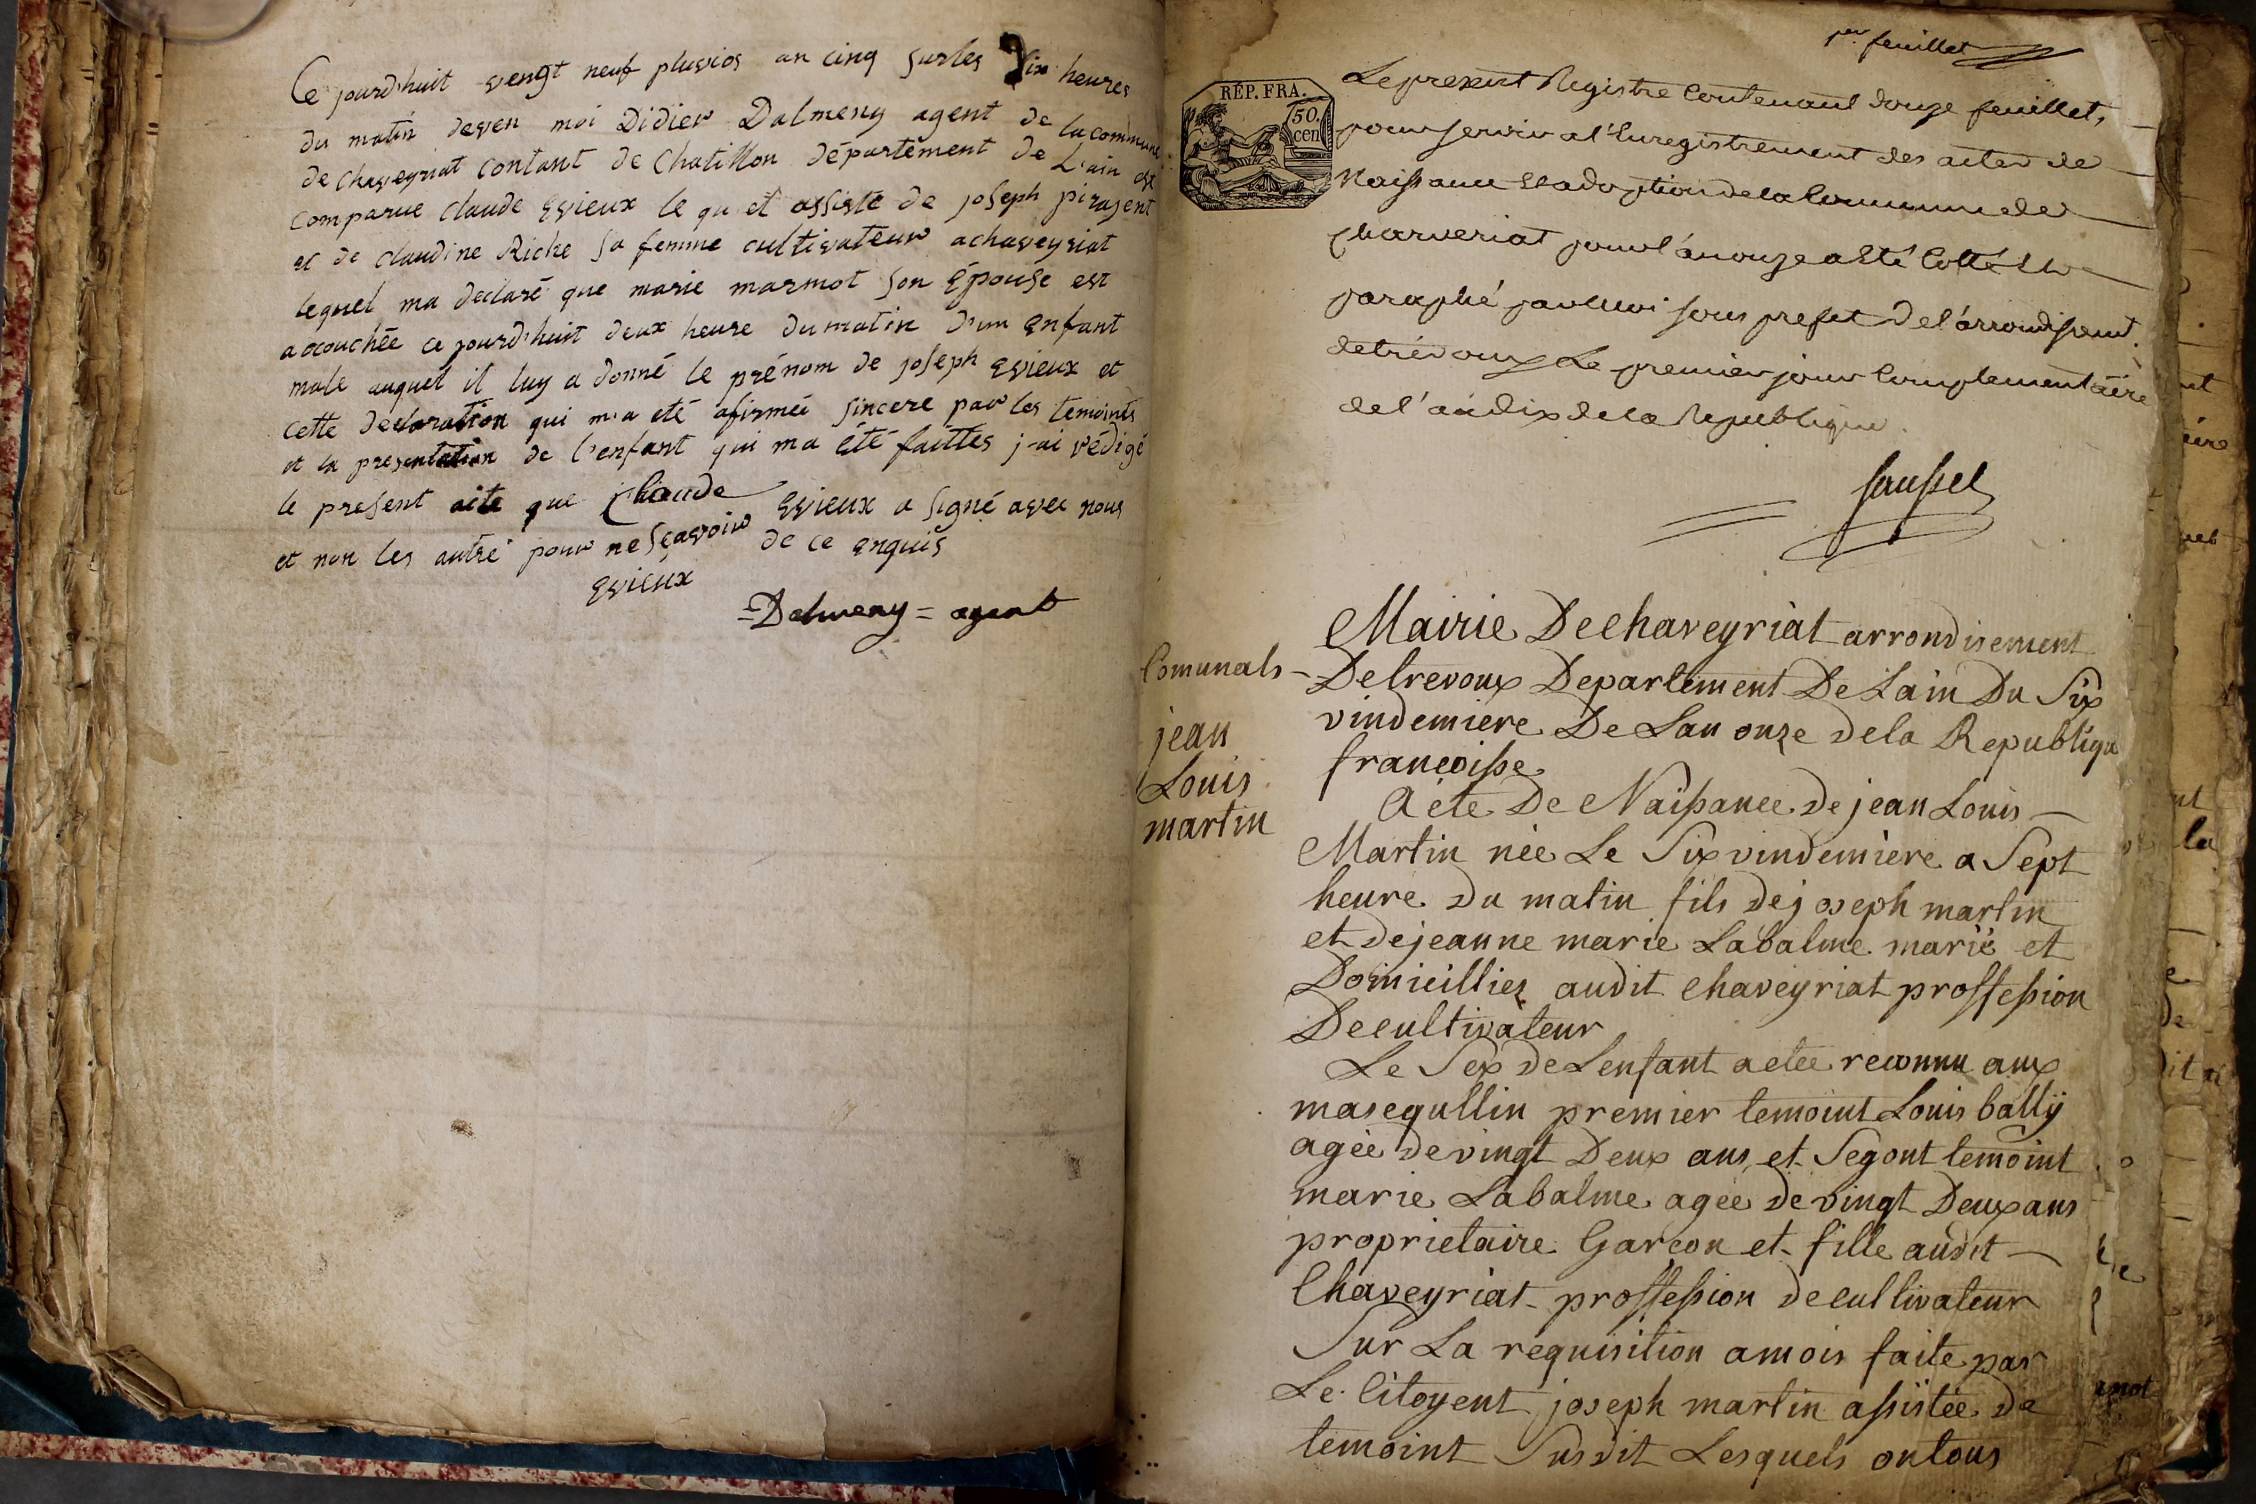 Ce jourd'huit vengt neuf pluvios an cinq surles dix heures
du matin deven moi Didier Dalmeny agent de la commune
de chaveyriat contant de Chatillon département de L'ain est
comparue claude Evieux le qu et assisté de joseph pirajent
et de claudine Riche sa femme cultivateur achaveyriat
lequel ma declaré que marie marmot son Épouse est
accouchée ce jourd'huit deux heure du matin d'un enfant
male auquel il luy a donné le prénom de joseph Evieux et
cette declaration qui m'a eté afirmée sincere par les temoints
et la presentation de l'enfant qui ma été faittes j-ai rédigé
le present acte que Claude Evieux a signé avec nous
et non les autre pour ne sçavoir de ce enquis
Evieux
=Dalmeny= agent
1er feuillet
RÉP. FRA.
50.
cen
Le present Registre Contenant douze feuillet,
pour servir a l'Enregistrement des actes de
Naissance et adoption de la Commune de
charveriat pour l'an onze a Eté Cotté et
paraphé par moi sous prefet de l'arrondissemt.
de trévoux Le premier jour Complementaire
de l'an dix de la Republique.
Saussel
Mairie De Chaveyriat arrondisement
De trevoux Departement De Lain Du Six
vindemiere De Lan onze dela Republiqu
francoisse
Comunals
jean
Louis
martin
Acte De Naissance de jean Louis
Martin née Le Six vindemiere a Sept
heure du matin fils de joseph martin
et de jeanne marie Labalme marié et
Domicilliez audit Chaveyriat proffession
De cultivateur
Le Sex de Lenfant a etee reconnu aux
masequllin premier temoint Louis bally
agée de vingt Deux ans et Segont temoint
marie Labalme agée de vingt Deux ans
proprietaire Garcon et fille audit
Chaveyriat proffession de cultivateur
Sur La requisition a mois faite par
Le Citoyent joseph martin assistée de
temoint Susdit Lesquels on tous